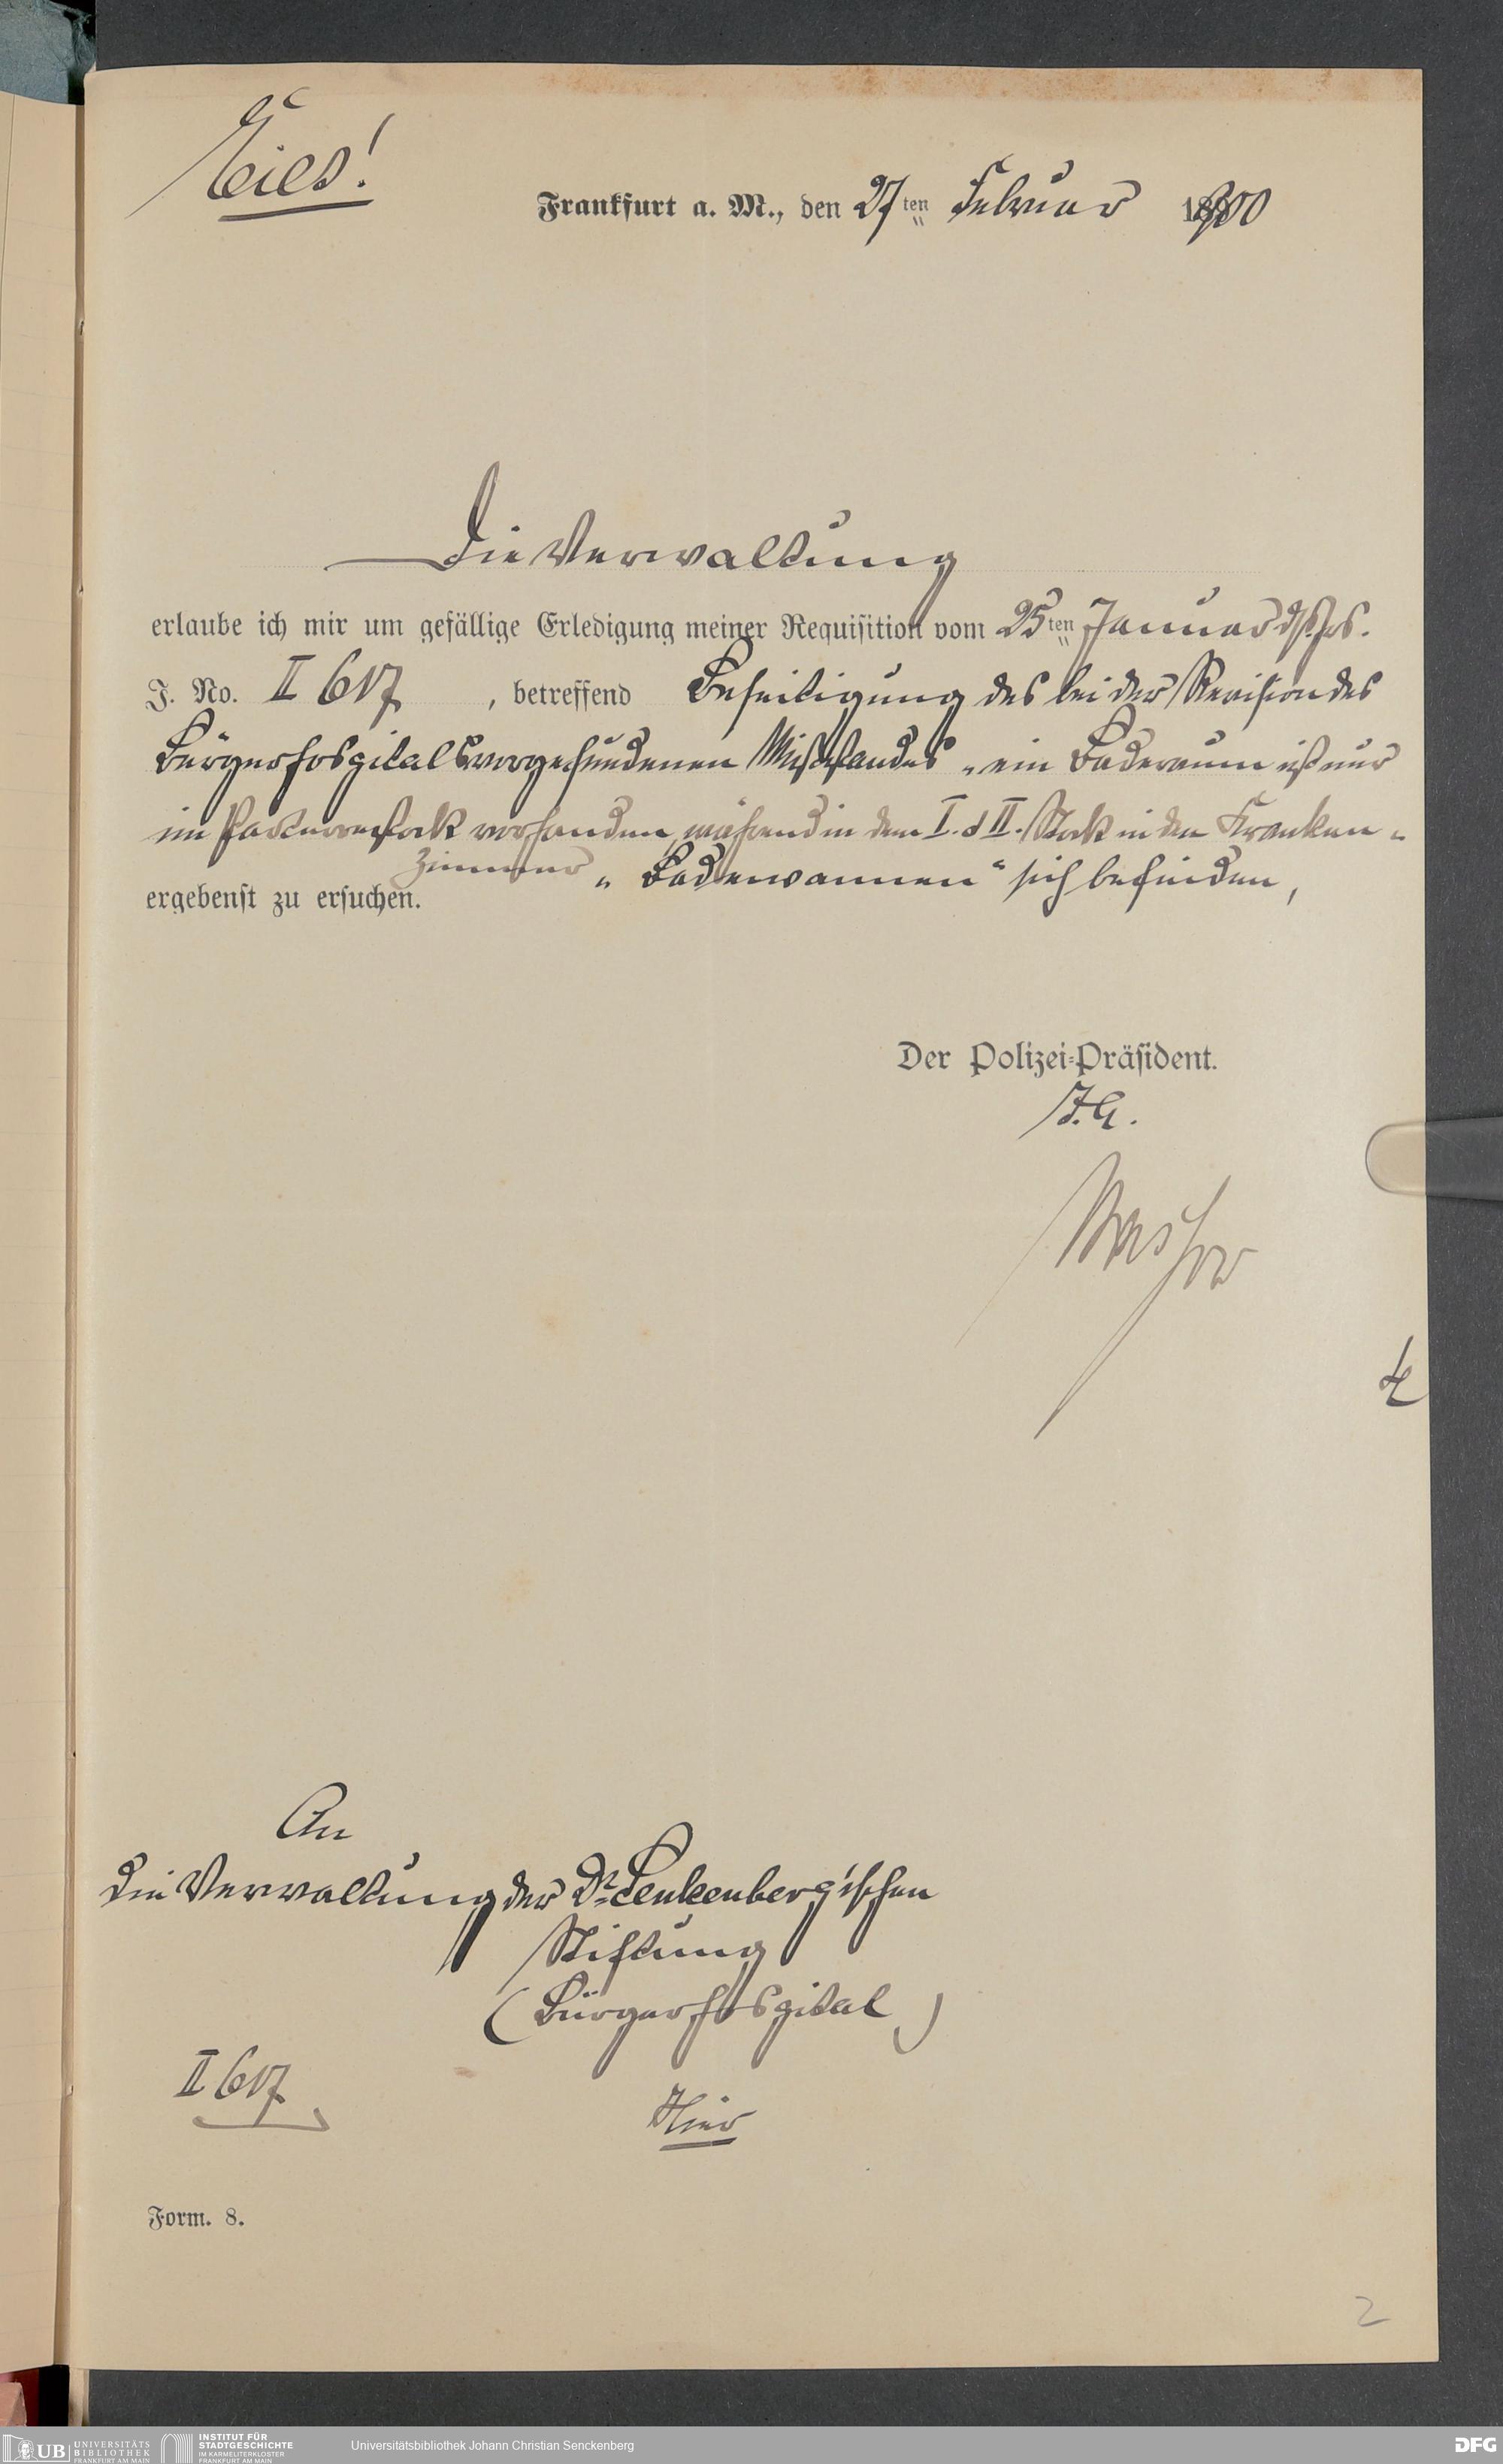 Eilt!
Frankfurt a. M., den 27ten Februar 1900
Die Verwaltung
erlaube ich mir um gefällige Erledigung meiner Requisition vom 25ten Januar ds. Js.
J. No. II 617, betreffend Beseitigung des bei der Revision des
Bürgerhospitals vorgefundenen Mißstandes „ein Baderaum ist nur
im Parterrestock vorhanden, während in dem I. & II. Stock in den Kranken-
zimmer „Badewannen“ sich befinden,
ergebenst zu ersuchen.
Der Polizei-Präsident.
I. A.
An
die Verwaltung der Dr. Senkenberg'schen
Stiftung
(Bürgerhospital)
II 617
Hier
Form. 8.
2
UB UNIVERSITÄTS
BIBLIOTHEK
FRANKFURT AM MAIN
INSTITUT FÜR
STADTGESCHICHTE
IM KARMELITERKLOSTER
FRANKFURT AM MAIN
Universitätsbibliothek Johann Christian Senckenberg
DFG